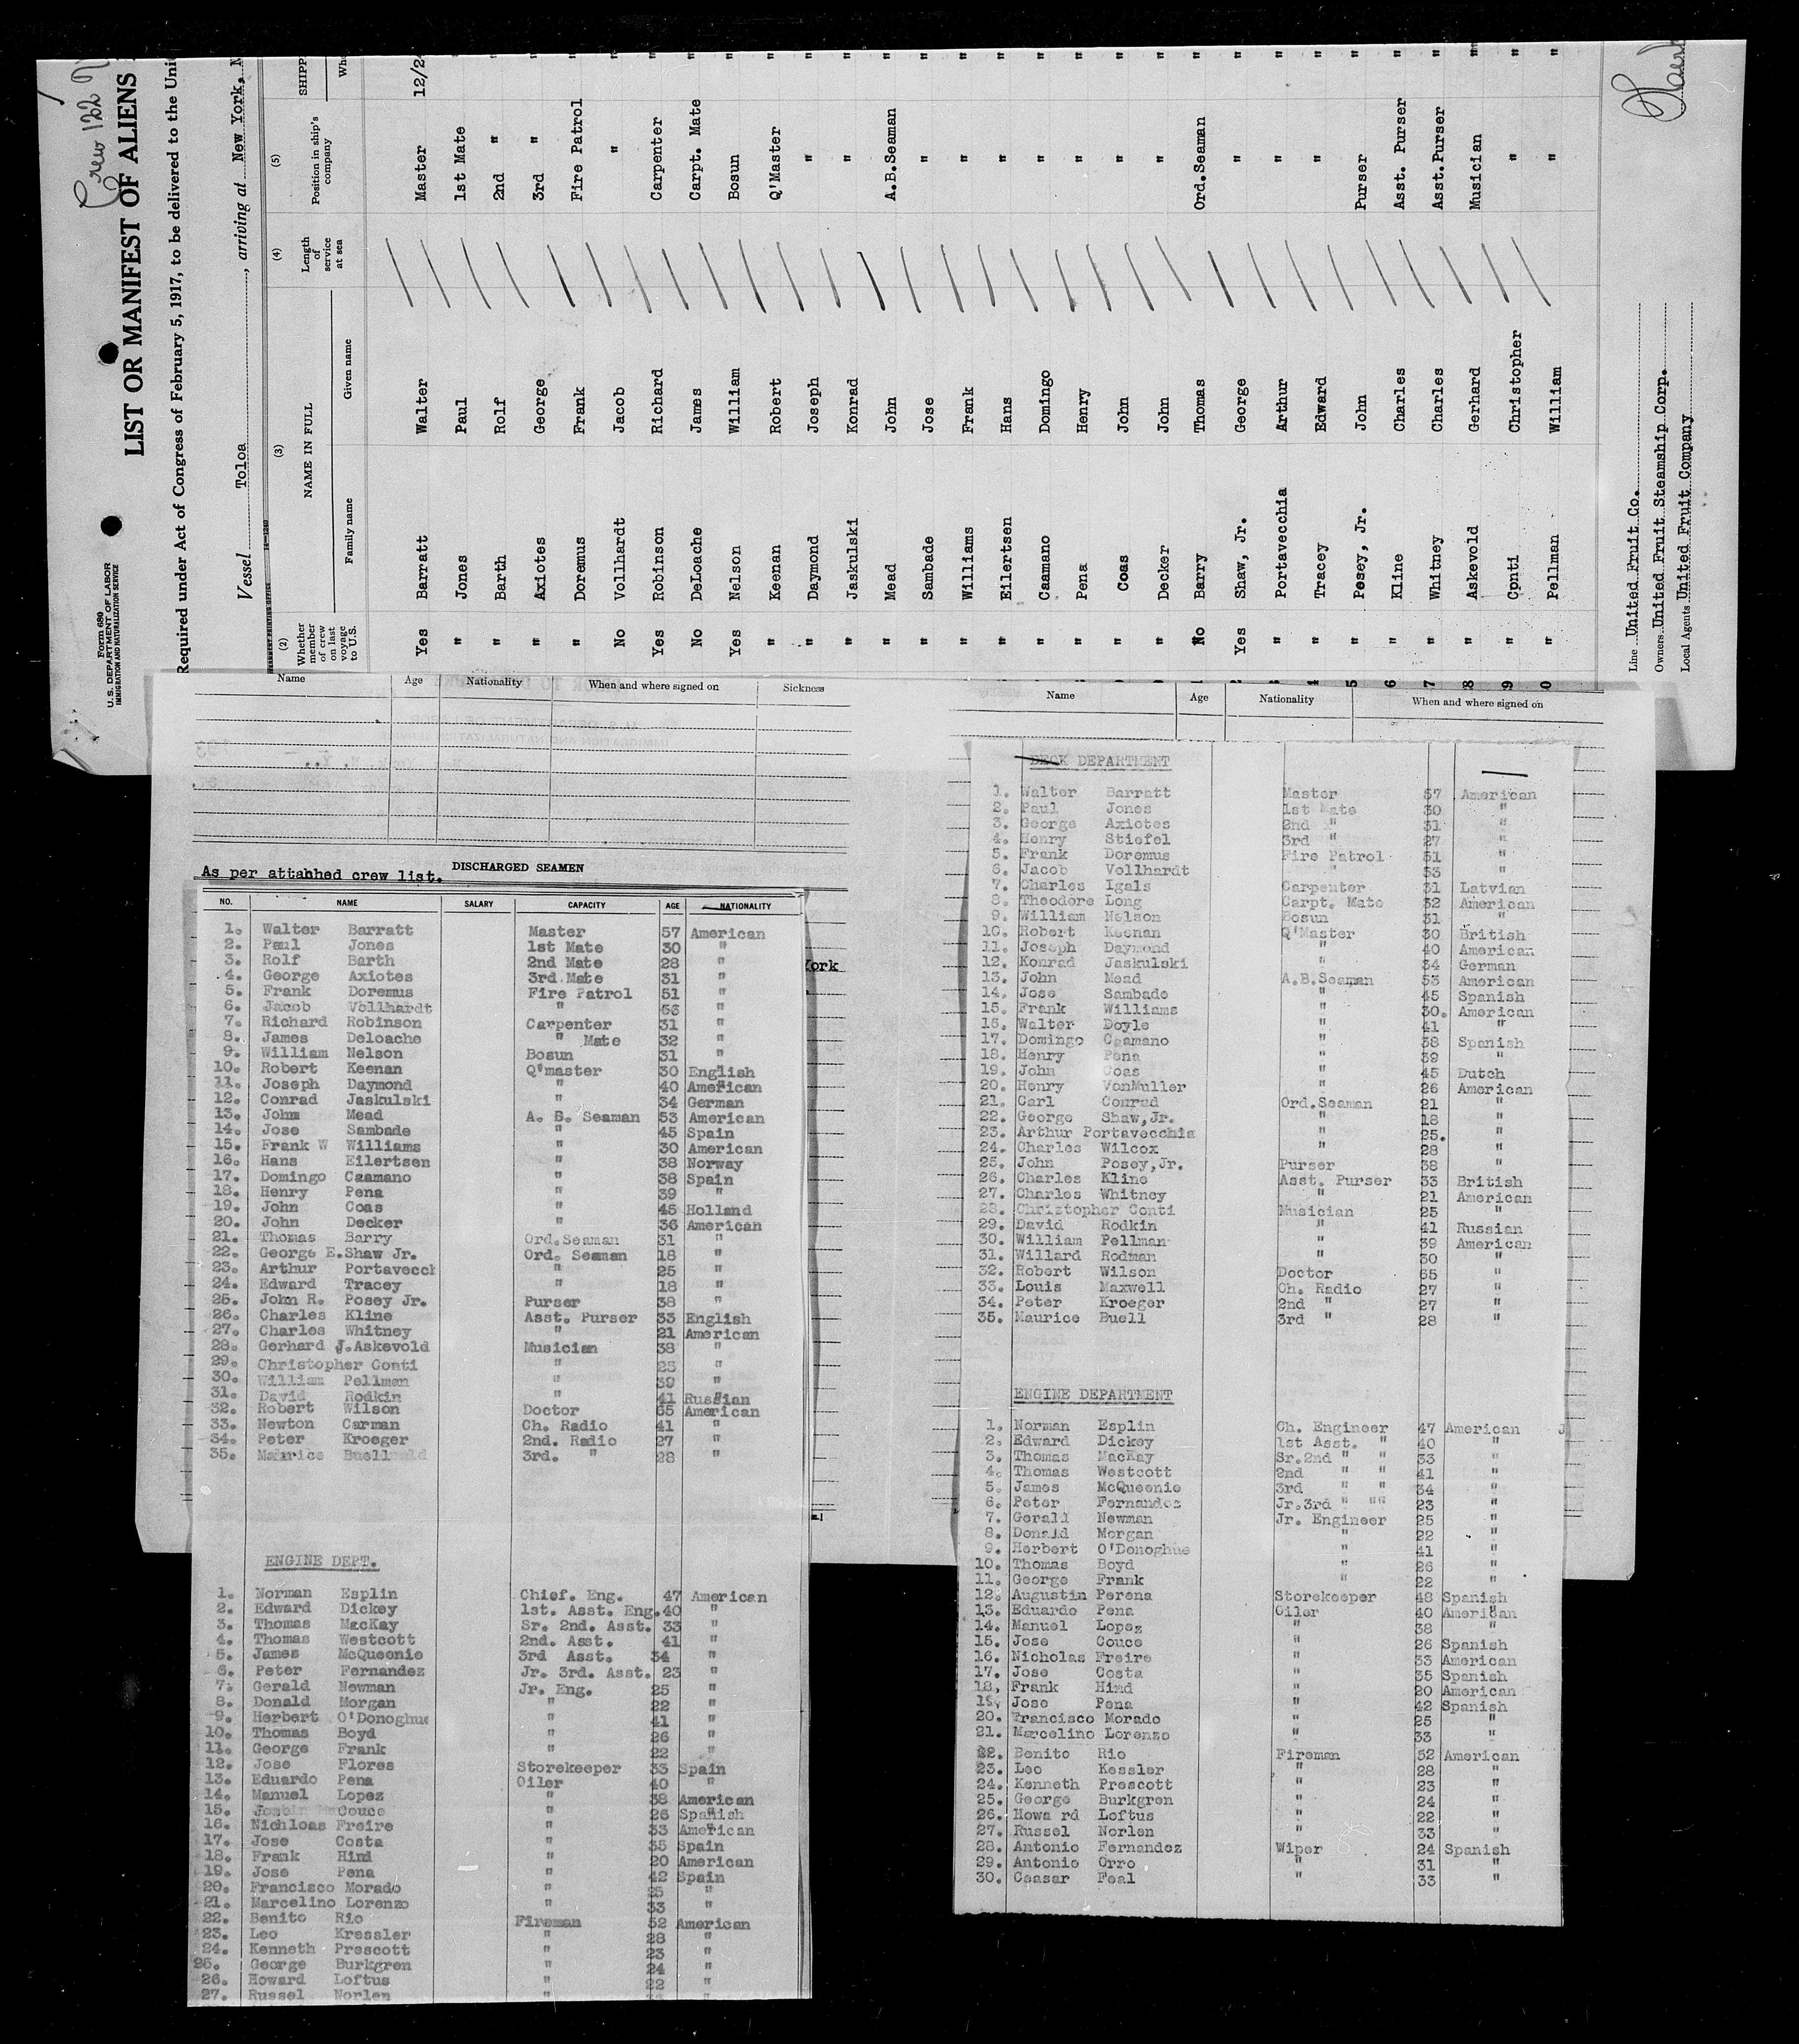 Crew 122
Form 680
U.S. DEPARTMENT OF LABOR
IMMIGRATION AND NATURALIZATION SERVICE
LIST OR MANIFEST OF ALIENS
Required under Act of Congress of February 5, 1917, to be delivered to the
Vessel Toloa, arriving at New York,
(2) (3) (4) (5)
Whether member of crew on last voyage to U.S. NAME IN FULL Length of service at sea Position in ship's company
Family name Given name
Yes Barratt Walter Master 12/2
" Jones Paul 1st Mate "
" Barth Rolf 2nd " "
" Axiotes George 3rd " "
" Doremus Frank Fire Patrol "
No Vollhardt Jacob " "
Yes Robinson Richard Carpenter "
No DeLoache James Carpt. Mate "
Yes Nelson William Bosun "
" Keenan Robert Q'Master "
" Daymond Joseph " "
" Jaskulski Konrad " "
" Mead John A.B.Seaman "
" Sambade Jose " "
" Williams Frank " "
" Eilertsen Hans " "
" Caamano Domingo " "
" Pena Henry " "
" Coas John " "
" Decker John " "
No Barry Thomas Ord.Seaman "
Yes Shaw, Jr. George " "
" Portavecchia Arthur " "
" Tracey Edward " "
" Posey, Jr. John Purser "
" Kline Charles Asst. Purser "
" Whitney Charles Asst.Purser "
" Askevold Gerhard Musician "
" Conti Christopher " "
" Pellman William " "
Line United Fruit Co.
Owners United Fruit Steamship Corp.
Local Agents United Fruit Company
Name Age Nationality When and where signed on Sickness
DISCHARGED SEAMEN
As per attahhed crew list.
York
NO. NAME SALARY CAPACITY AGE NATIONALITY
1. Walter Barratt Master 57 American
2. Paul Jones 1st Mate 30 "
3. Rolf Barth 2nd Mate 28 "
4. George Axiotes 3rd.Mate 31 "
5. Frank Doremus Fire Patrol 51 "
6. Jacob Vollhardt " 53 "
7. Richard Robinson Carpenter 31 "
8. James Deloache " Mate 32 "
9. William Nelson Bosun 31 "
10. Robert Keenan Q'master 30 English
11. Joseph Daymond " 40 American
12. Conrad Jaskulski " 34 German
13. John Mead A. B. Seaman 53 American
14. Jose Sambade " 45 Spain
15. Frank W Williams " 30 American
16. Hans Eilertsen " 38 Norway
17. Domingo Caamano " 38 Spain
18. Henry Pena " 39 "
19. John Coas " 45 Holland
20. John Decker " 36 American
21. Thomas Barry Ord.Seaman 31 "
22. George E.Shaw Jr. Ord. Seaman 18 "
23. Arthur Portavecch " 25 "
24. Edward Tracey " 18 "
25. John R. Posey Jr. Purser 38 "
26. Charles Kline Asst. Purser 33 English
27. Charles Whitney " 21 American
28. Gerhard J.Askevold Musician 38 "
29. Christopher Conti " 25 "
30. William Pellman " 39 "
31. David Rodkin " 41 Russian
32. Robert Wilson Doctor 65 American
33. Newton Carman Ch. Radio 41 "
34. Peter Kroeger 2nd. Radio 27 "
35. Maurice Buell 3rd. " 28 "
ENGINE DEPT.
1. Norman Esplin Chief. Eng. 47 American
2. Edward Dickey 1st. Asst. Eng. 40 "
3. Thomas MacKay Sr. 2nd. Asst. 33 "
4. Thomas Westcott 2nd. Asst. 41 "
5. James McQueenie 3rd Asst. 34 "
6. Peter Fernandez Jr. 3rd. Asst. 23 "
7. Gerald Newman Jr. Eng. 25 "
8. Donald Morgan " 22 "
9. Herbert O'Donoghue " 41 "
10. Thomas Boyd " 26 "
11. George Frank " 22 "
12. Jose Flores Storekeeper 33 Spain
13. Eduardo Pena Oiler 40 "
14. Manuel Lopez " 38 American
15. Couce " 26 Spanish
16. Nichloas Freire " 33 American
17. Jose Costa " 35 Spain
18. Frank Hind " 20 American
19. Jose Pena " 42 Spain
20. Francisco Morado " 25 "
21. Marcelino Lorenzo " 33 "
22. Benito Rio Fireman 52 American
23. Leo Kressler " 28 "
24. Kenneth Prescott " 23 "
25. George Burkgren " 24 "
26. Howard Loftus " 22 "
27. Russel Norlen " "
Name Age Nationality When and where signed on
DECK DEPARTMENT
1. Walter Barratt Master 57 American
2. Paul Jones 1st Mate 30 "
3. George Axiotes 2nd " 31 "
4. Henry Stiefel 3rd " 27 "
5. Frank Doremus Fire Patrol 51 "
6. Jacob Vollhardt " 53 "
7. Charles Igals Carpenter 31 Latvian
8. Theodore Long Carpt. Mate 32 American
9. William Nelson Bosun 31 "
10. Robert Keenan Q'Master 30 British
11. Joseph Daymond " 40 American
12. Konrad Jaskulski " 34 German
13. John Mead A.B.Seaman 53 American
14. Jose Sambade " 45 Spanish
15. Frank Williams " 30. American
16. Walter Doyle " 41 "
17. Domingo Caamano " 38 Spanish
18. Henry Pena " 39 "
19. John Coas " 45 Dutch
20. Henry VonMuller " 26 American
21. Carl Conrad Ord.Seaman 21 "
22. George Shaw,Jr. " 18 "
23. Arthur Portavecchia " 25. "
24. Charles Wilcox " 28 "
25. John Posey,Jr. Purser 38 "
26. Charles Kline Asst. Purser 33 British
27. Charles Whitney " 21 American
28. Christopher Conti Musician 25 "
29. David Rodkin " 41 Russian
30. William Pellman " 39 American
31. Willard Rodman " 30 "
32. Robert Wilson Doctor 65 "
33. Louis Maxwell Ch. Radio 27 "
34. Peter Kroeger 2nd " 27 "
35. Maurice Buell 3rd " 28 "
ENGINE DEPARTMENT
1. Norman Esplin Ch. Engineer 47 American
2. Edward Dickey 1st Asst. " 40 "
3. Thomas MacKay Sr.2nd " " 33 "
4. Thomas Westcott 2nd " " 41 "
5. James McQueenie 3rd " " 34 "
6. Peter Fernandez Jr.3rd " "" 23 "
7. Gerald Newman Jr. Engineer 25 "
8. Donald Morgan " 22 "
9. Herbert O'Donoghue " 41 "
10. Thomas Boyd " 26 "
11. George Frank " 22 "
12. Augustin Perena Storekeeper 48 Spanish
13. Eduardo Pena Oiler 40 American
14. Manuel Lopez " 38 "
15. Jose Couce " 26 Spanish
16. Nicholas Freire " 33 American
17. Jose Costa " 35 Spanish
18, Frank Hind " 20 American
19, Jose Pena " 42 Spanish
20. Francisco Morado " 25 "
21. Marcelino Lorenzo " 33 "
22. Benito Rio Fireman 52 American
23. Leo Kessler " 28 "
24. Kenneth Prescott " 23 "
25. George Burkgren " 24 "
26. Howa rd Loftus " 22 "
27. Russel Norlen " 33 "
28. Antonio Fernandez Wiper 24 Spanish
29. Antonio Orro " 31 "
30. Ceasar Feal " 33 "